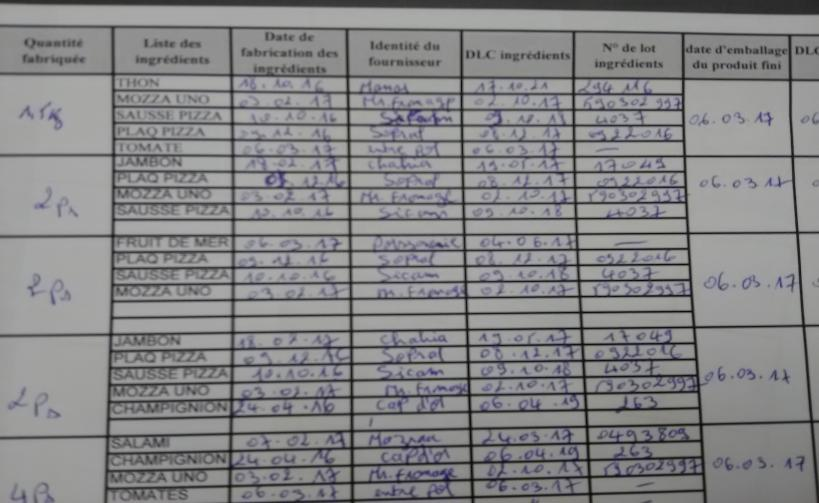 Quantité fabriquée Liste des ingrédients Date de fabrication des ingrédients Identité du fournisseur DLC ingrédients N° de lot ingrédients date d'emballage du produit fini DLC
THON 18.10.16 Manar 17.10.21 294 116
MOZZA UNO 03.02.17 Mr. fromage 02.10.17 590302997
SAUSSE PIZZA 10.10.16 Sicam 09.10.18 4037 06.03.17 06
PLAQ PIZZA 09.12.16 Soprol 08.12.17 0922016
TOMATE 06.03.17 06.03.17 —
JAMBON 19.02.17 chahia 19.05.17 17049
2Ps PLAQ PIZZA 09.12.16 Soprol 08.12.17 0922016 06.03.17
MOZZA UNO 03.02.17 Mr. Fromage 02.10.17 590302997
SAUSSE PIZZA 10.10.16 Sicam 09.10.18 4037
FRUIT DE MER 06.03.17 04.06.17 —
PLAQ PIZZA 09.12.16 Soprol 08.12.17 0922016
2Ps SAUSSE PIZZA 10.10.16 Sicam 09.10.18 4037 06.03.17
MOZZA UNO 03.02.17 M. Fromage 02.10.17 590302997
JAMBON 18.02.17 Chahia 19.05.17 17049
PLAQ PIZZA 09.12.16 Soprol 08.12.17 0922016
SAUSSE PIZZA 10.10.16 Sicam 09.10.18 4037 06.03.17
2Ps MOZZA UNO 03.02.17 Mr. Fromage 02.10.17 590302997
CHAMPIGNION 24.04.16 Cap d'or 06.04.19 263
SALAMI 07.02.17 24.03.17 0493809
CHAMPIGNION 24.04.16 cap d'or 06.04.19 263
4Ps MOZZA UNO 03.02.17 Mr. Fromage 02.10.17 590302997 06.03.17
TOMATES 06.03.17 06.03.17 —